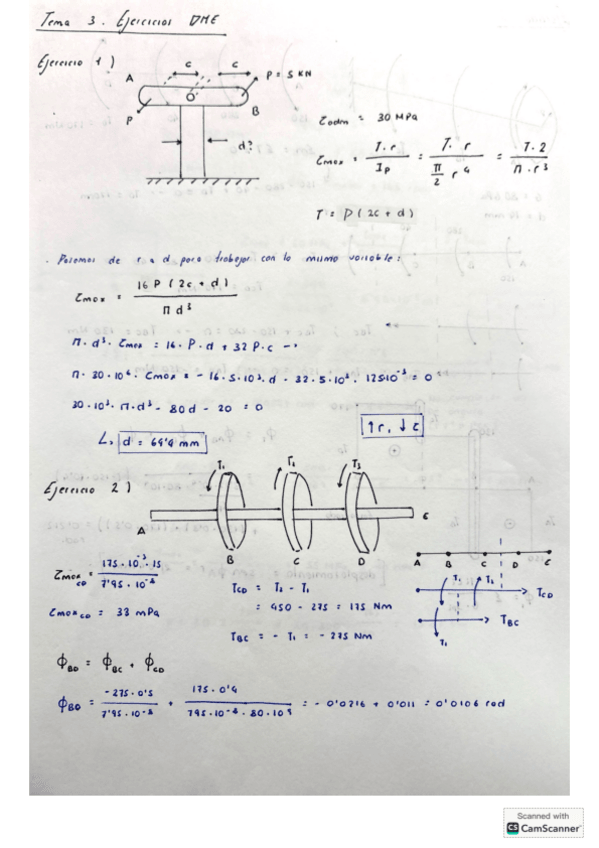 Tema 3. Ejercicios DME
Ejercicio 1)
c c
A
P = 5 KN
O
P
B
d?
τadm = 30 MPa
τmax = T·r / Ip = T·r / (π/2 r⁴) = T·2 / π·r³
T = P(2c + d)
. Pasamos de r a d para trabajar con la misma variable:
τmax = 16 P (2c + d) / π d³
π·d³·τmax = 16·P·d + 32 P·c →
π·30·10⁶·τmax = - 16·5·10³·d - 32·5·10³·125·10⁻³ = 0
30·10³·π·d³ - 80d - 20 = 0
↑r, ↓τ
↳ d = 69'4 mm
Ejercicio 2)
T₁ T₂ T₃
A B C D E
A B C D E
T₁ T₂ TCD
TBC
T₁
τmax CD = 175·10⁻³·15 / 7'95·10⁻⁸
TCD = T₂ - T₁
= 450 - 275 = 175 Nm
τmax CD = 33 MPa
TBC = - T₁ = - 275 Nm
ϕBD = ϕBC + ϕCD
ϕBD = -275·0'5 / 7'95·10⁻⁸ + 175·0'4 / 795·10⁻⁸·80·10⁹ = - 0'0216 + 0'011 = 0'0106 rad
Scanned with
CS CamScanner